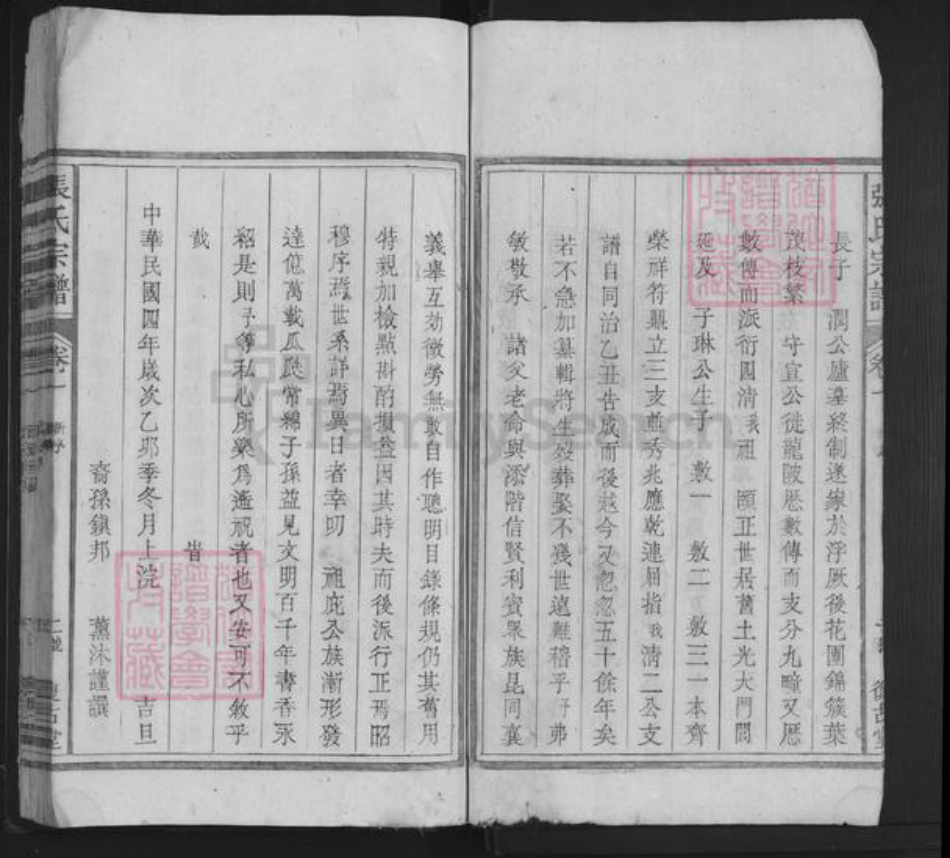 長子　潤公廬墓終制遂家於浮厥後花團錦簇葉
茂枝繁　守宣公徙龍陂歷數傳而支分九疇又歷
數傳而派衍四清我祖　頤正世居舊土光大門閭
延及　子琳公生子　敷一　敷二　敷三一本齊
榮祥符鼎立三支並秀兆應乾連屈指我清二公支
譜自同治乙丑告成而後越今又忽忽五十餘年矣
若不急加纂輯將生歿葬娶不幾世遠難稽乎予弗
敏敬承　諸父老命與添階信賢利賓眾族昆同襄
義舉互効微勞無敢自作聰明目錄條規仍其舊用
特親加檢點斟酌損益因其時夫而後派行正焉昭
穆序焉世系詳焉異日者幸叨　祖庇公族漸形發
達億萬載瓜瓞常綿子孫益見文明百千年書香永
紹是則予等私心所樂為遙祝者也又安可不敘乎
哉　　　　　　　　　　皆
中華民國四年歲次乙卯季冬月上浣　　　吉旦
裔孫鎮邦　薰沐謹譔
張氏宗譜
卷一
新序
二號
張氏宗譜
卷一
FamilySearch